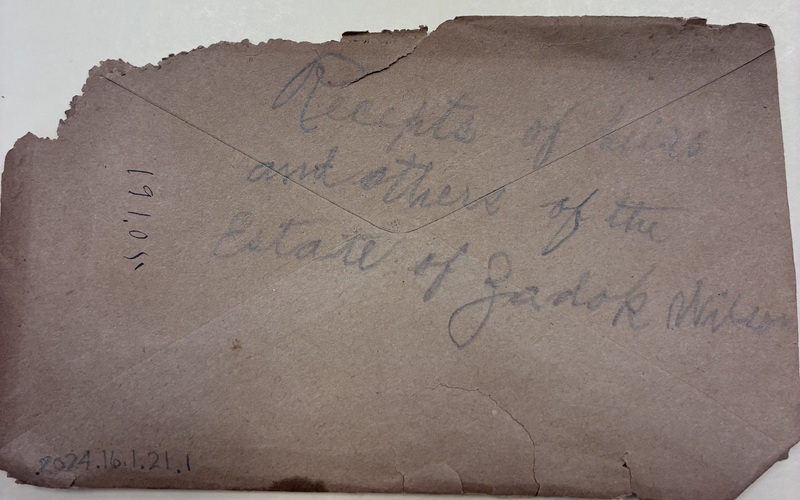 Receipts of heirs
and others of the
Estate of Zadok Wilson
2024.16.1.21.1